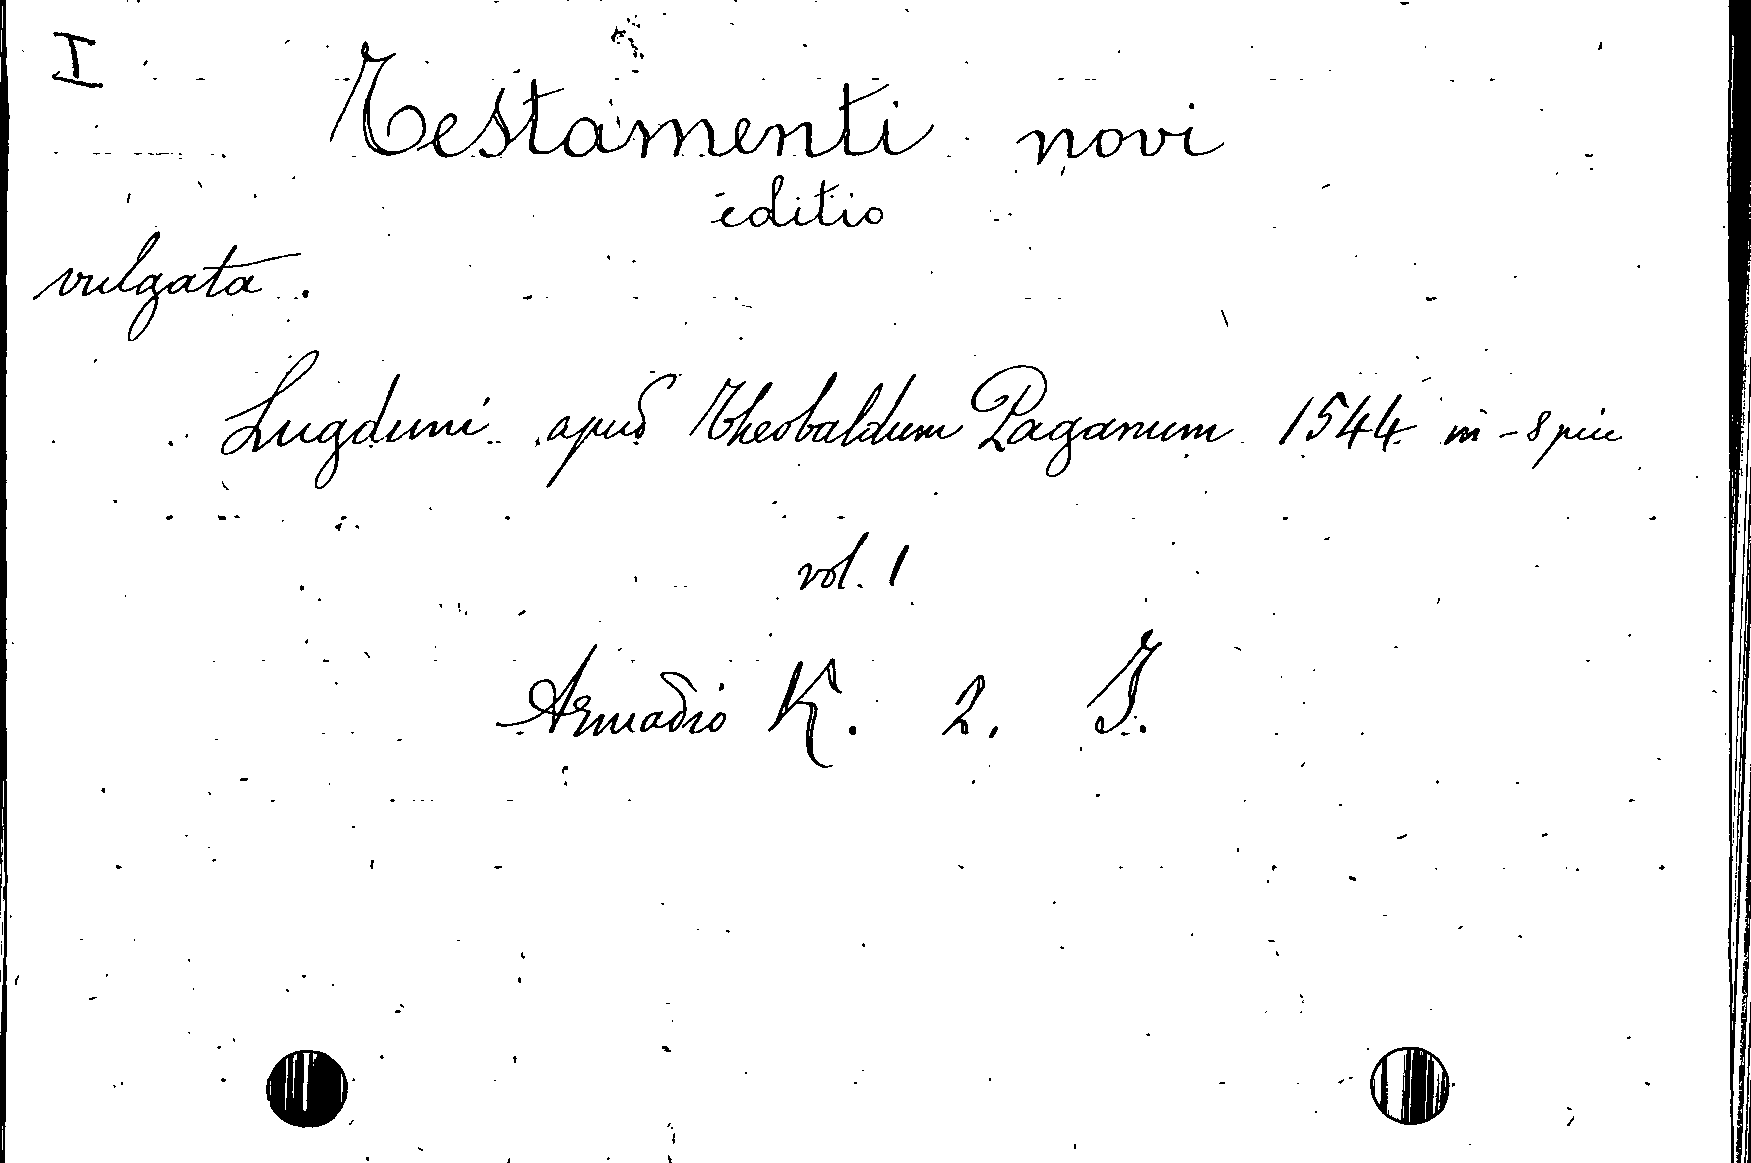 I
Testamenti novi
editio
vulgata.
Lugduni apud Theobaldum Paganum 1544 in-8 picc
vol. 1
Armadio K. 2. I.